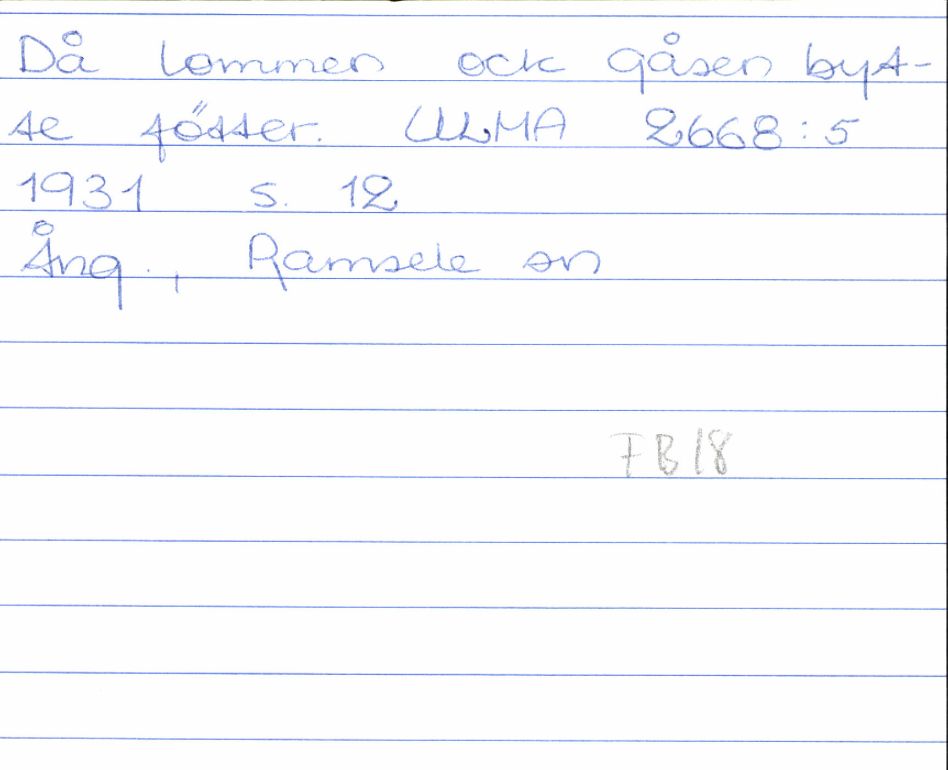 Då lommen ock gåsen byt-
te fötter. ULMA 2668:5
1931 s. 12
Ång., Ramsele sn
FB 18